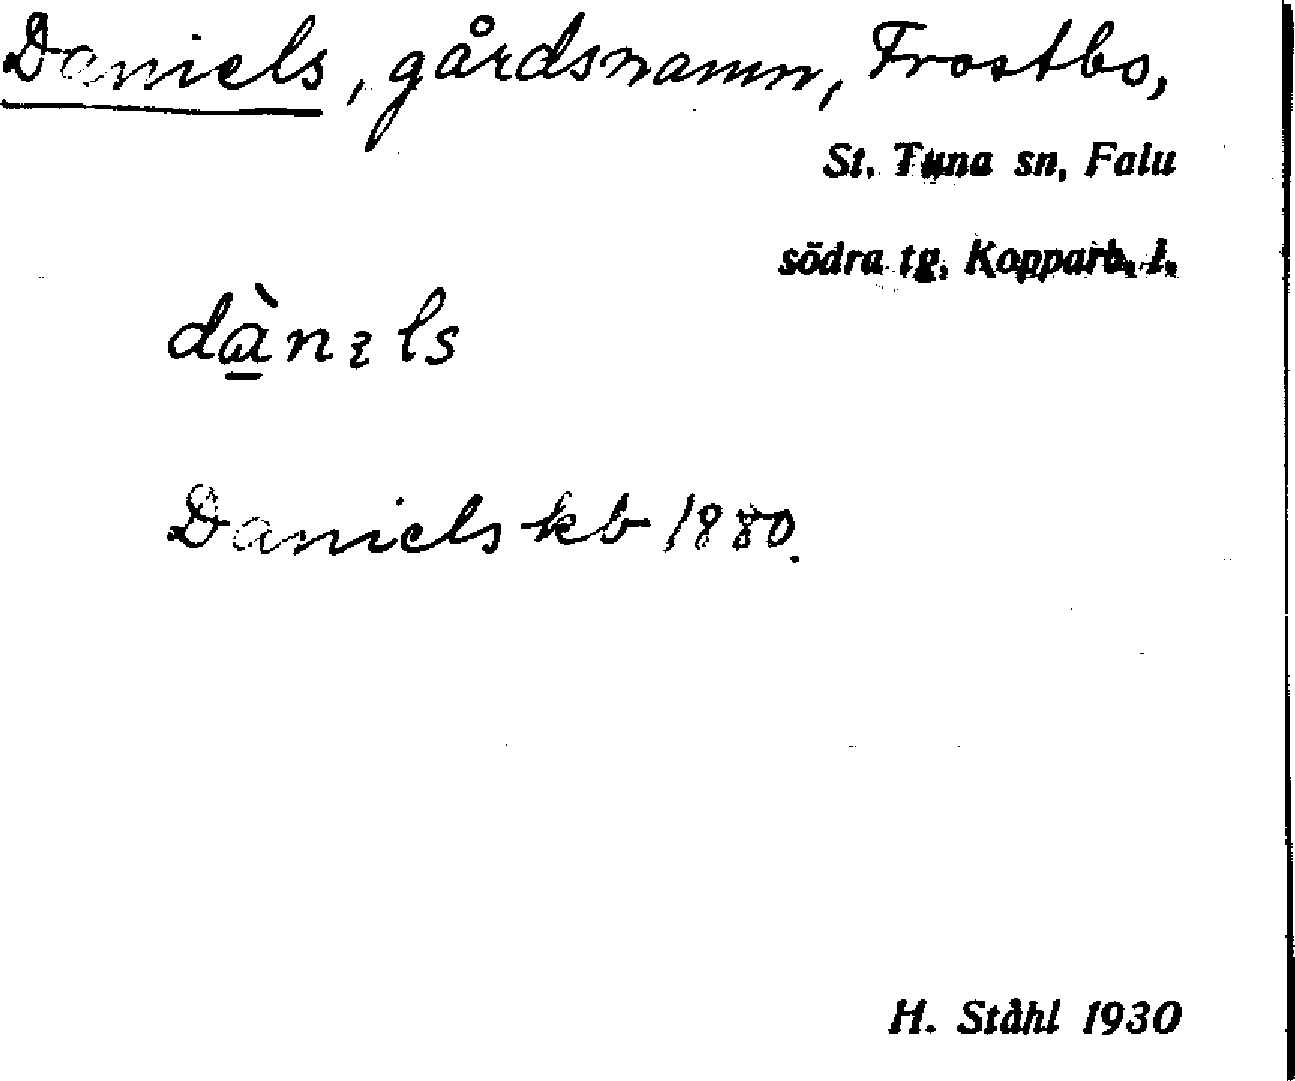 Daniels, gårdsnamn, Frostbo,
St. Tuna sn, Falu
södra tg, Kopparb. l.
dὰ̱nɛls
Daniels kb 1880.
H. Ståhl 1930